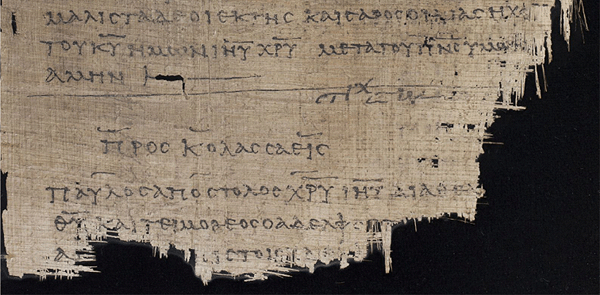 ΜΑΛΙϹΤΑΔΕΟΙΕΚΤΗϹ ΚΑΙϹΑΡΟϹΟΙΚΙΑϹΗΧΑ
ΤΟΥΚ̅Υ̅ΗΜΩΝΙ̅Η̅Υ̅ Χ̅Ρ̅Υ̅ ΜΕΤΑΤΟΥΠ̅Ν̅Ϲ̅ΥΜΩ
ΑΜΗΝ
ΠΡΟϹ ΚΟΛΑϹϹΑΕΙϹ
ΠΑΥΛΟϹΑΠΟϹΤΟΛΟϹΧ̅Ρ̅Υ̅ Ι̅Η̅Υ̅ ΔΙΑΘΕΛ
Θ̅Υ̅ ΚΑΙΤΕΙΜΟΘΕΟϹΟΑΔΕΛΦ
ΙϹΤΟΙϹ